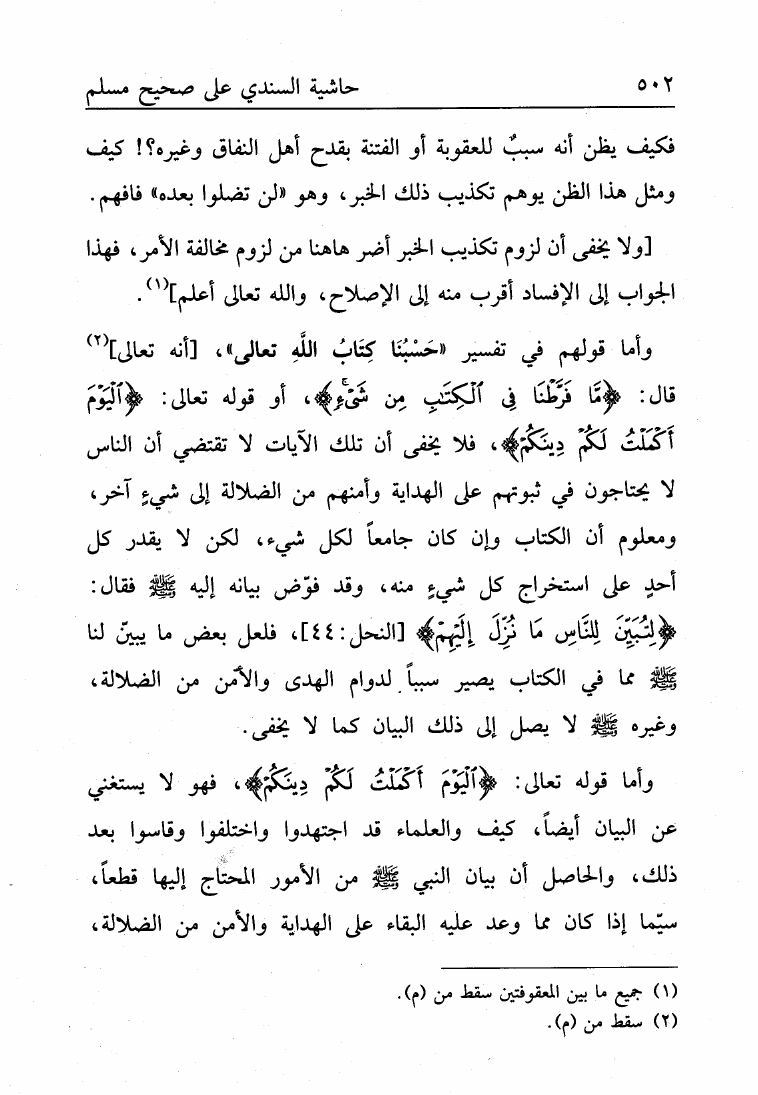 ٥٠٢ حاشية السندي على صحيح مسلم
فكيف يظن أنه سببٌ للعقوبة أو الفتنة بقدح أهل النفاق وغيره؟! كيف
ومثل هذا الظن يوهم تكذيب ذلك الخبر، وهو «لن تضلوا بعده» فافهم.
[ولا يخفى أن لزوم تكذيب الخبر أضر هاهنا من لزوم مخالفة الأمر، فهذا
الجواب إلى الإفساد أقرب منه إلى الإصلاح، والله تعالى أعلم](١).
وأما قولهم في تفسير «حَسْبُنَا كِتَابُ اللَّهِ تعالى»، [أنه تعالى](٢)
قال: ﴿مَّا فَرَّطْنَا فِي ٱلْكِتَٰبِ مِن شَيْءٍۚ﴾، أو قوله تعالى: ﴿ٱلْيَوْمَ
أَكْمَلْتُ لَكُمْ دِينَكُمْ﴾، فلا يخفى أن تلك الآيات لا تقتضي أن الناس
لا يحتاجون في ثبوتهم على الهداية وأمنهم من الضلالة إلى شيءٍ آخر،
ومعلوم أن الكتاب وإن كان جامعاً لكل شيء، لكن لا يقدر كل
أحدٍ على استخراج كل شيءٍ منه، وقد فوّض بيانه إليه ﷺ فقال:
﴿لِتُبَيِّنَ لِلنَّاسِ مَا نُزِّلَ إِلَيْهِمْ﴾ [النحل:٤٤]، فلعل بعض ما يبيّن لنا
ﷺ مما في الكتاب يصير سبباً لدوام الهدى والأمن من الضلالة،
وغيره ﷺ لا يصل إلى ذلك البيان كما لا يخفى.
وأما قوله تعالى: ﴿ٱلْيَوْمَ أَكْمَلْتُ لَكُمْ دِينَكُمْ﴾، فهو لا يستغني
عن البيان أيضاً، كيف والعلماء قد اجتهدوا واختلفوا وقاسوا بعد
ذلك، والحاصل أن بيان النبي ﷺ من الأمور المحتاج إليها قطعاً،
سيّما إذا كان مما وعد عليه البقاء على الهداية والأمن من الضلالة،
(١) جميع ما بين المعقوفتين سقط من (م).
(٢) سقط من (م).